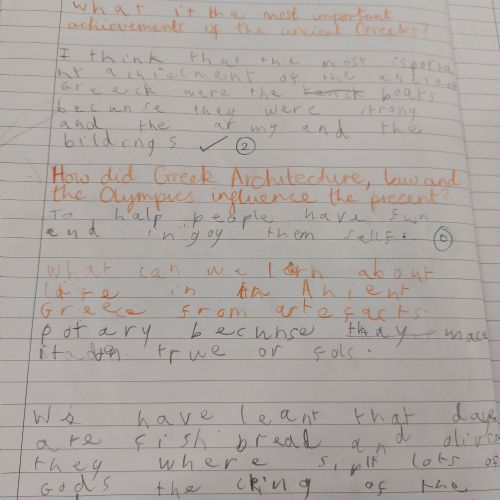 What is the most important
achievements of the ancient Greeks?
I think that the most isporta
nt achielment of the ancient
Greeck were the boats
becunse they were strong
and the army and the
bildings ✓ 2
How did Greek Architecture, law and
the Olympics influence the present?
To halp people have fun
end ingoy them self. 0
What can we lern about
life in An Ahient
Greece from artefacts.
potary becuhse thay mace
it true or fols.
We have leant that days
ate fish bread and olives
they where lots of
Gods the cking of the